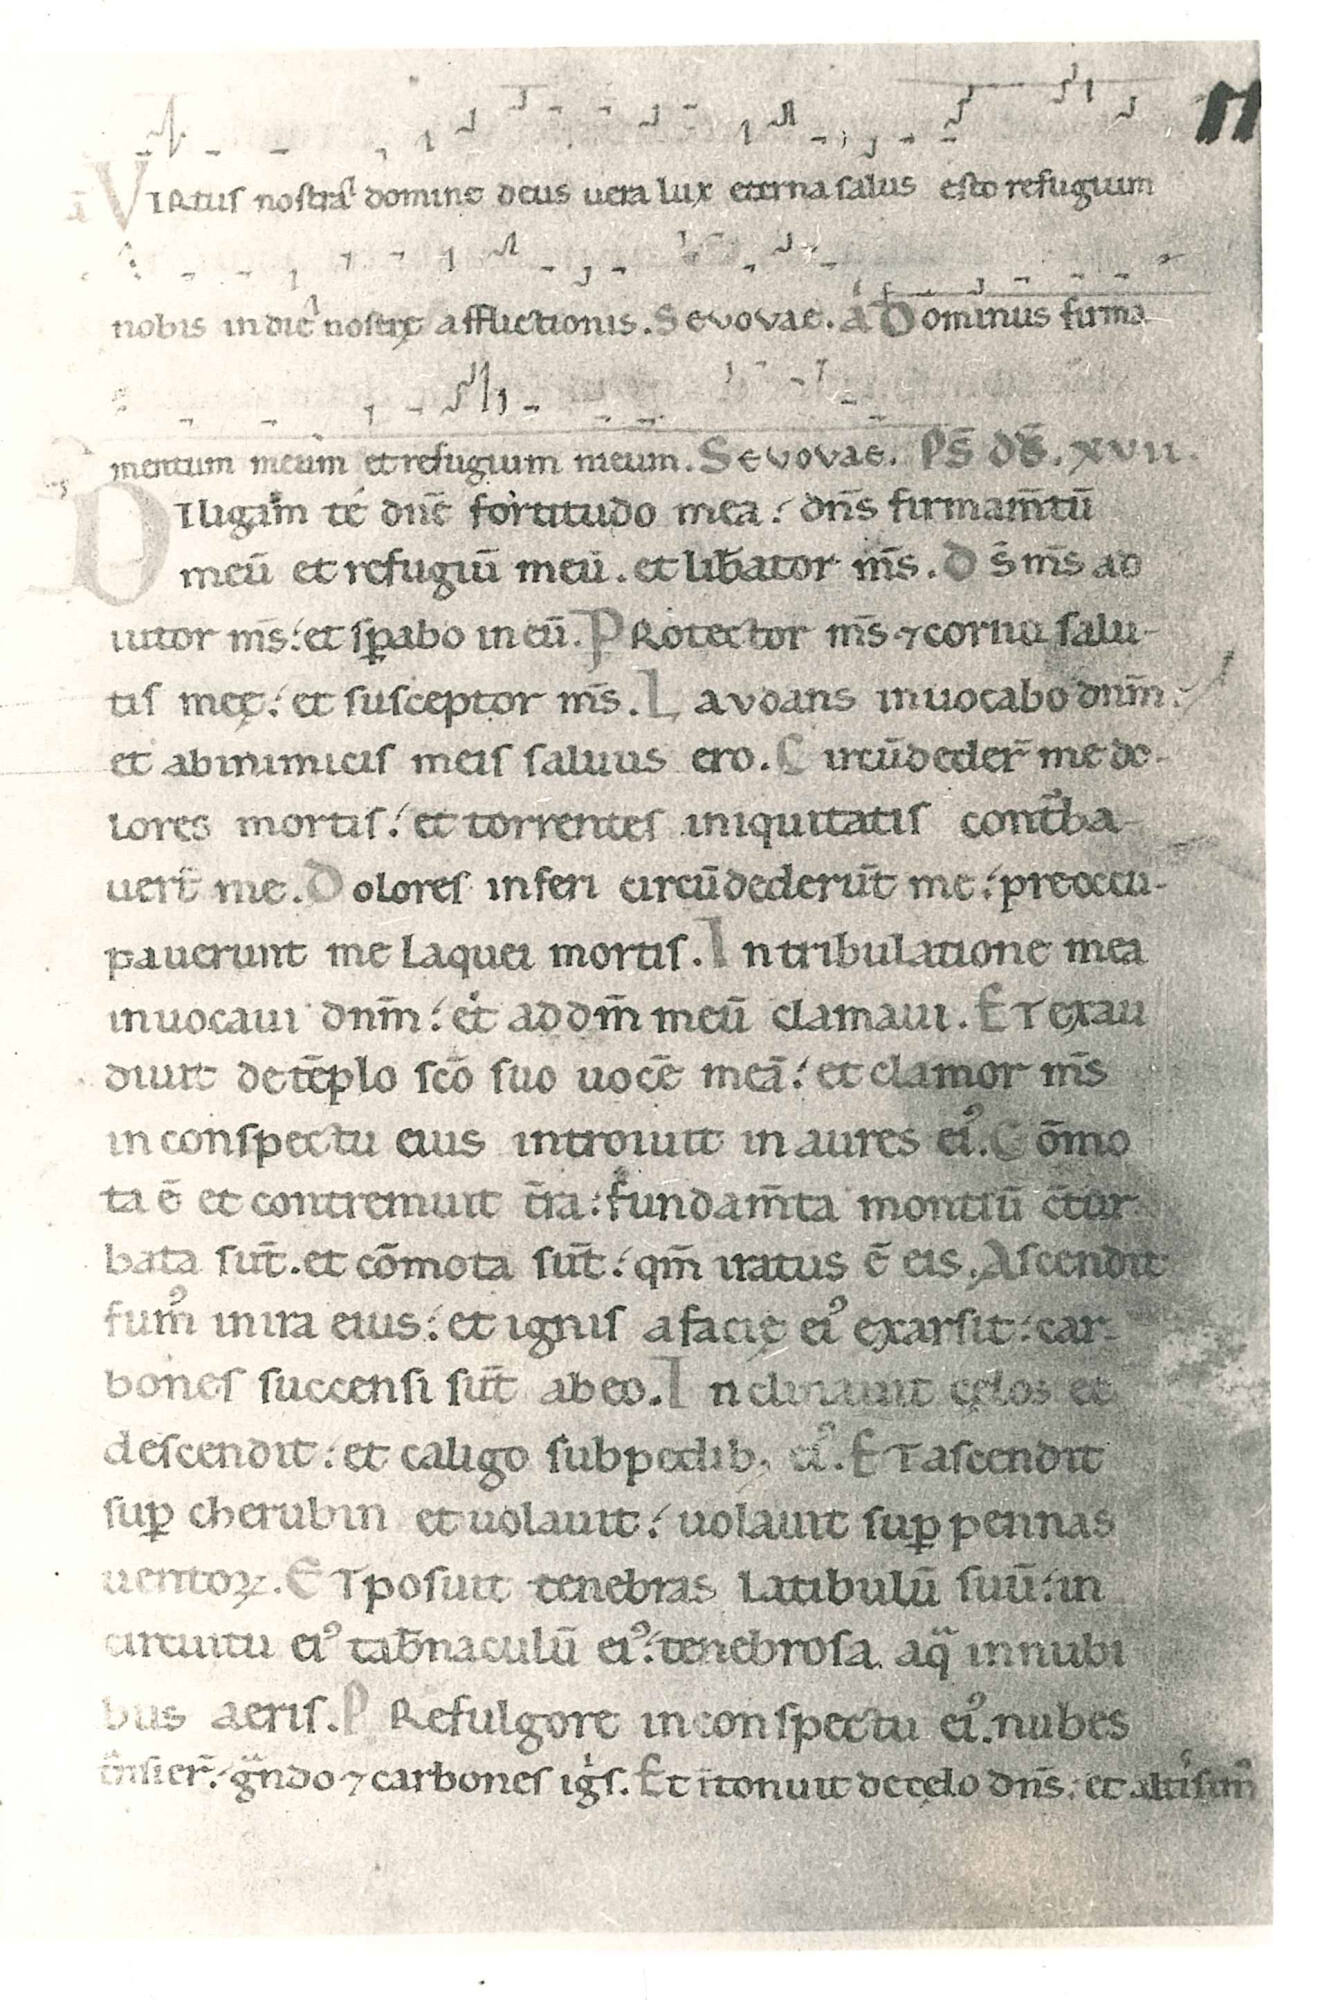 VIRtus nostra domine deus uera lux eterna salus esto refugium
nobis in die nostrę afflictionis. Seuouae. A Dominus firma
mentum meum et refugium meum. Seuouae. PS̄ DD̄. XVII.
DIligam te dn̄e fortitudo mea: dn̄s firmam̄tū
meū et refugiū meū. et lib̄ator m̄s. D s̄ m̄s ad
iutor m̄s: et sꝑabo in eū. PRotector m̄s ⁊ cornu salu-
tis męę: et susceptor m̄s. Laudans inuocabo dnm̄:
et ab inimicis meis saluus ero. Circūdeder̄ me do-
lores mortis: et torrentes iniquitatis cont̄ba-
uert̄ me. Dolores inferi circūdederūt me: preoccu-
pauerunt me laquei mortis. In tribulatione mea
inuocaui dnm̄: et ad dm̄ meū clamaui. ET exau
diuit de tēplo scō suo uocē meā: et clamor m̄s
in conspectu eius introiuit in aures eiꝰ. Cōmo
ta ē et contremuit t̄ra: fundam̄ta montiū c̄tur
bata sūt. et cōmota sūt: qm̄ iratus ē eis. Ascendit
fumꝰ in ira eius: et ignis a facię eiꝰ exarsit: car-
bones succensi sūt ab eo. Inclinauit cęlos et
descendit: et caligo sub pedib; eiꝰ. ET ascendit
suꝑ cherubin et uolauit: uolauit suꝑ pennas
uentoꝝ. ET posuit tenebras latibulū suū: in
circuitu eiꝰ tab̄naculū eiꝰ: tenebrosa aq̄ in nubi
bus aeris. PRe fulgore in conspectu eiꝰ. nubes
t̄nsier̄: gͣndo ⁊ carbones igⁱs. Et ītonuit de cęlo dn̄s: et altisimꝰ